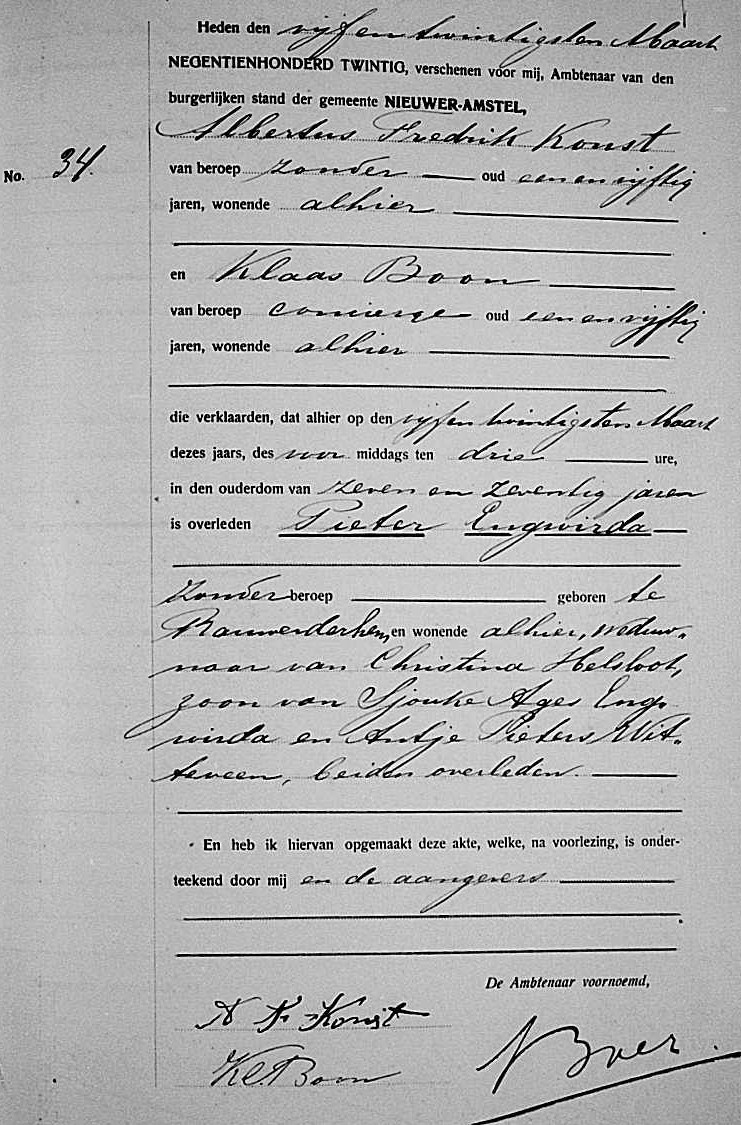 Heden den vijfentwintigsten Maart
NEGENTIENHONDERD TWINTIG, verschenen voor mij, Ambtenaar van den
burgerlijken stand der gemeente NIEUWER-AMSTEL,
Albertus Fredrik Konst
No. 34.
van beroep zonder oud eenenvijftig
jaren, wonende alhier
en Klaas Boon
van beroep concierge oud eenenvijftig
jaren, wonende alhier
die verklaarden, dat alhier op den vijfentwintigsten Maart
dezes jaars, des voor middags ten drie ure,
in den ouderdom van zeven en zeventig jaren
is overleden Pieter Engwirda
zonder beroep geboren te
Rauwerderhem, en wonende alhier, weduw„
naar van Christina Helsloot,
zoon van Sjouke Ages Eng„
wirda en Antje Pieters Wit„
teveen, beiden overleden.
En heb ik hiervan opgemaakt deze akte, welke, na voorlezing, is onder-
teekend door mij en de aangevers
De Ambtenaar voornoemd,
A F Konst
Kl. Boon
Boer.